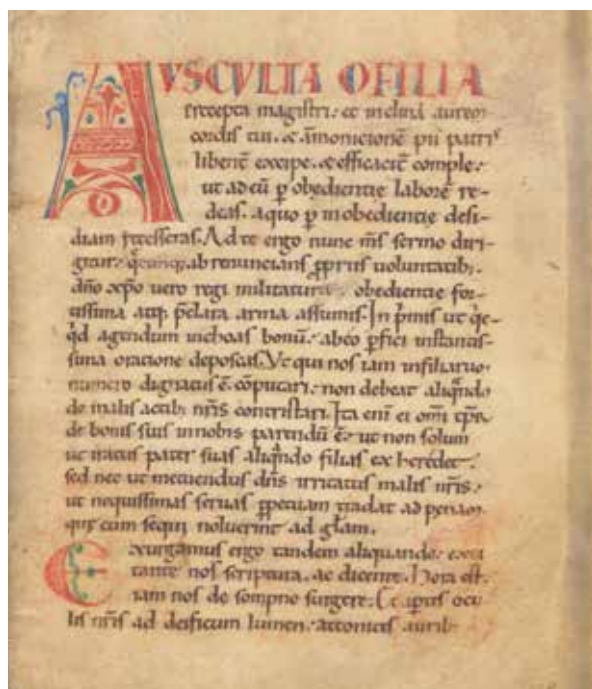 AUSCULTA O FILIA
precepta magistri. et inclina aurem
cordis tui. & ãmonicionẽ pii patris
libent̃ excipe. & efficacit̃ comple.
ut ad eũ ꝑ obedientię laborẽ re-
deas. a quo ꝑ inobedientię desi-
diam recesseras. Ad te ergo nunc m̃s sermo diri-
gitur. q̃cunq; abrenuncians ꝓpriis uoluntatib;
dño xp̃o uero regi militatura. obedientię for-
tissima atq; p̃clara arma assumis. In p̃mis ut q̃c-
q̃d agendum inchoas bonũ. ab eo ꝑfici instantis-
sima oracione deposcas. Vt qui nos iam in filiaruͫ
numero dignatus ẽ. cõputari. non debeat aliq̃ndo
de malis actib; nr̃is contristari. Ita enĩ ei omĩ tp̃r
de bonis suis in nobis parendũ ẽ. ut non solum
ut iratus pater suas aliq̃ndo filias exheredet.
sed nec ut metuendus dñs irritatus malis nr̃is.
ut nequissimas seruas ꝑpetuam tradat ad penam
quę eum sequi noluerint ad gl̃am.
Exurgamus ergo tandem aliquando. exci
tante nos scriptura. ac dicente. Hora est
iam nos de sompno surgere. Et aptis ocu
lis nr̃is ad deificum lumen. attonitis aurib;